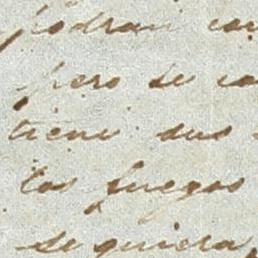 podran con
pero se co
tiene sus
los fuegos
se quiera,